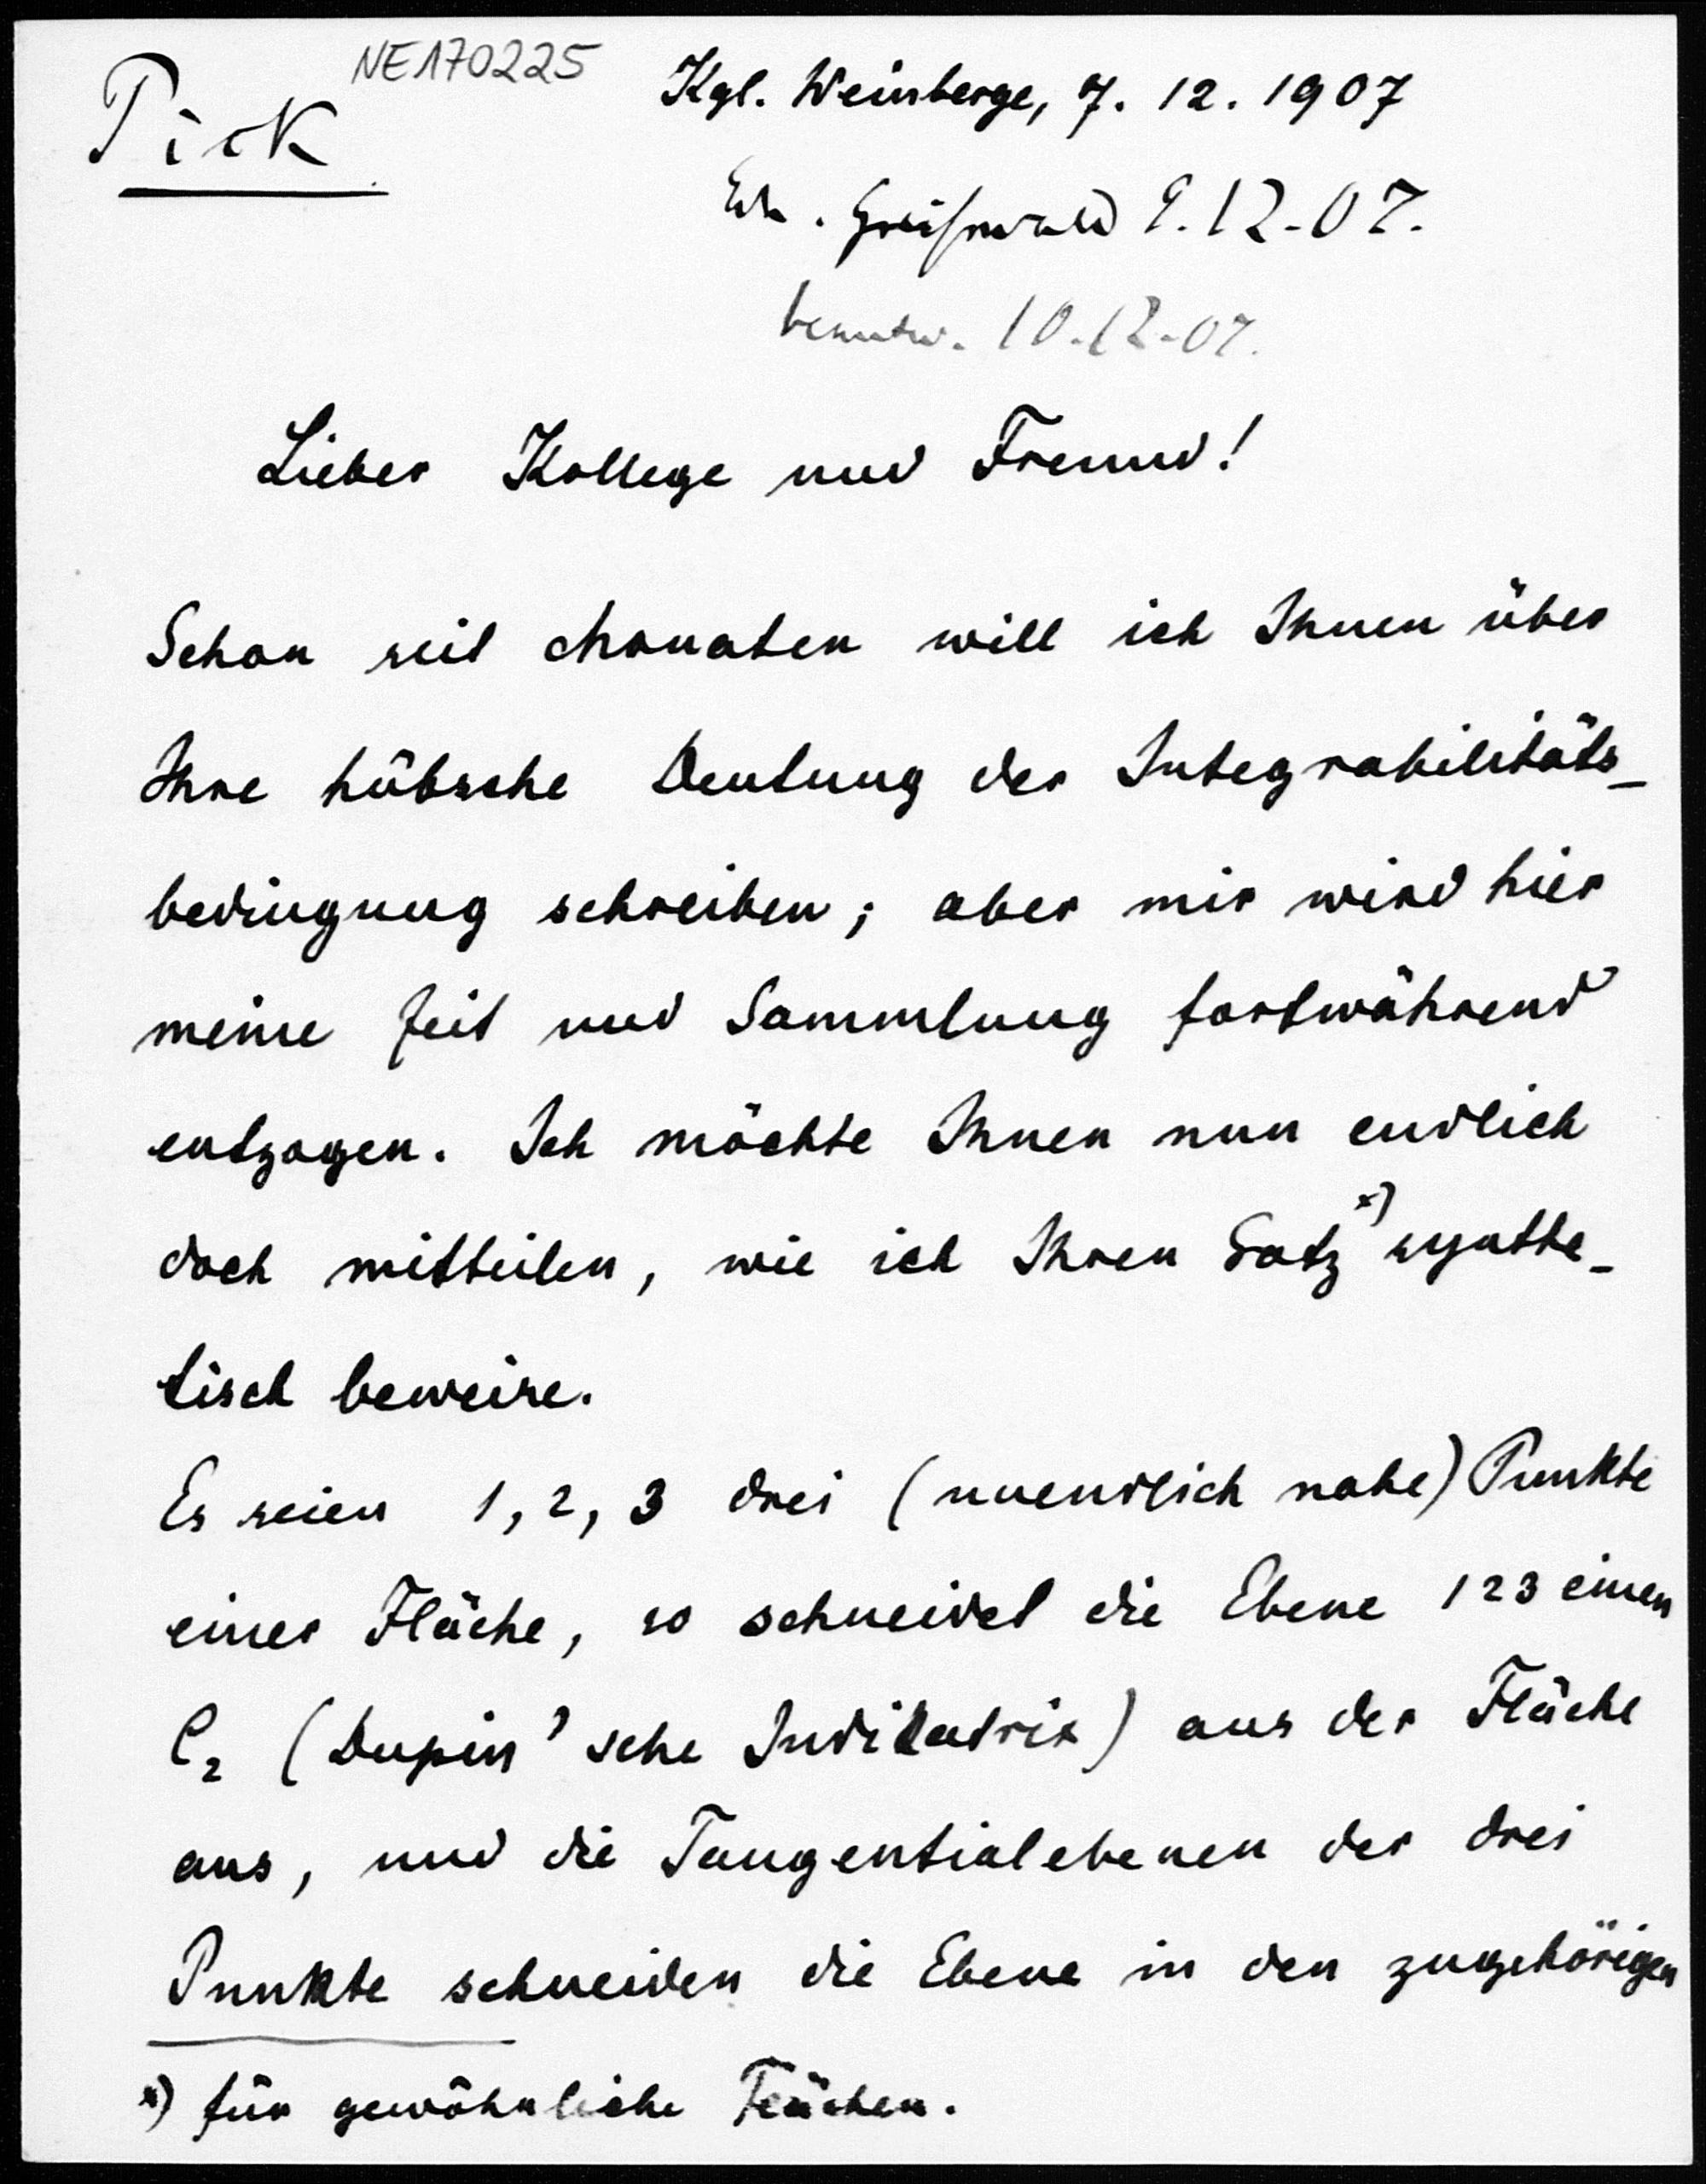 NE170225
Pick
Kgl. Weinberge, 7. 12. 1907
Erh. Greifswald 9.12-07.
beantw. 10.12-07.
Lieber Kollege und Freund!
Schon seit Monaten will ich Ihnen über
Ihre hübsche Deutung der Integrabilitäts-
bedingung schreiben; aber mir wird hier
meine Zeit und Sammlung fortwährend
entzogen. Ich möchte Ihnen nun endlich
doch mitteilen, wie ich Ihren Satz *) synthe-
tisch beweise.
Es seien 1, 2, 3 drei (unendlich nahe) Punkte
einer Fläche, so schneidet die Ebene 123 einen
C₂ (Dupin'sche Indikatrix) aus der Fläche
aus, und die Tangentialebenen der drei
Punkte schneiden die Ebene in den zugehörigen
*) für gewöhnliche Flächen.